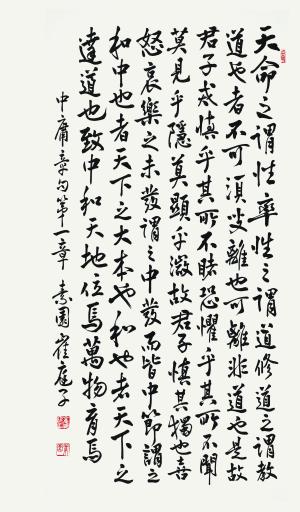 天命之謂性率性之謂道修道之謂教
道也者不可須臾離也可離非道也是故
君子戒慎乎其所不睹恐懼乎其所不聞
莫見乎隱莫顯乎微故君子慎其獨也喜
怒哀樂之未發謂之中發而皆中節謂之
和中也者天下之大本也和也者天下之
達道也致中和天地位焉萬物育焉
中庸章句第一章 素園 崔庭子